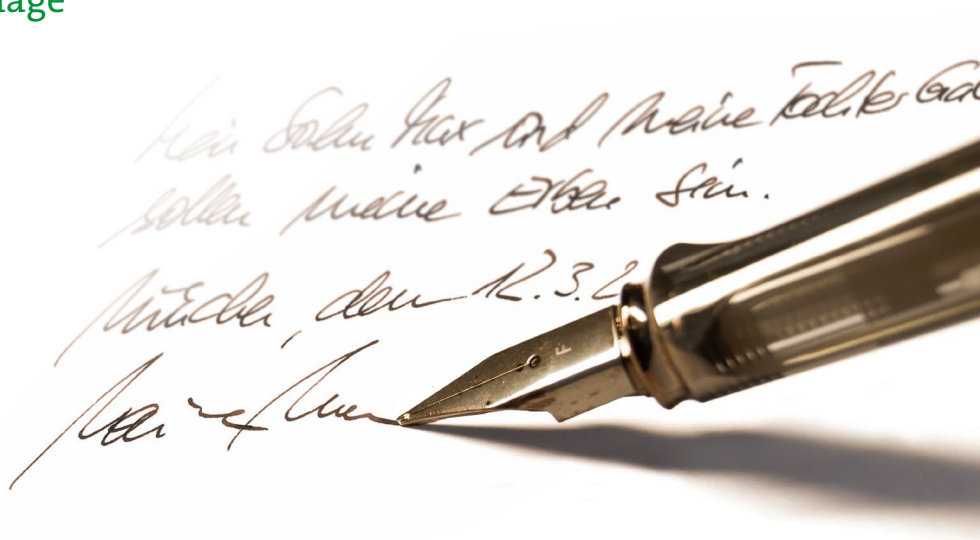 lage
Mein Sohn Max und meine Tochter Ga
sollen meine Erben sein.
München, den 12.3.2